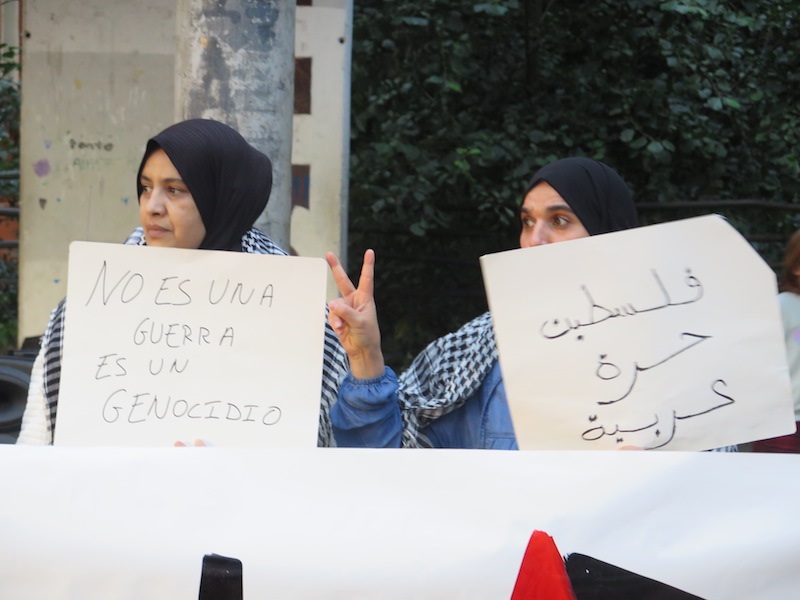 NO ES UNA
GUERRA
ES UN
GENOCIDIO
فلسطين
حرة
عربية